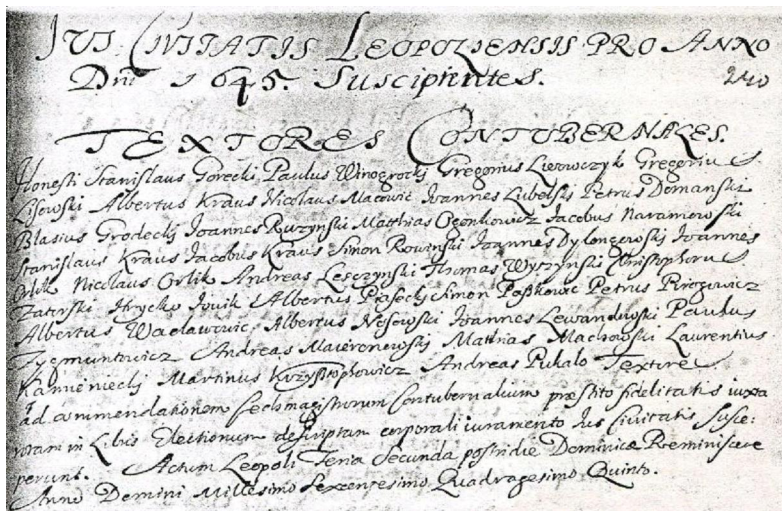 IVS CIVITATIS LEOPOLIENSIS PRO ANNO
Dni 1645. Suscipientes. 240
TEXTORES CONTUBERNALES.
Honesti Stanislaus Gorecki Paulus Winogrocki Gregorius Lwowczyk Gregorius
Lisowski Albertus Kraus Nicolaus Macowic Joannes Lubelski Petrus Domanski
Blasius Grodecki Joannes Ruzynski Matthias Ogonkowicz Jacobus Naramowski
Stanislaus Kraus Jacobus Kraus Simon Rowinski Joannes Joannes
Orlik Nicolaus Orlik Andreas Lesczynski Thomas Wyrzynski Christophorus
Zatorski Hrycko Albertus Piasecki Simon Paszkowic Petrus Pirogowicz
Albertus Waclawowic, Albertus Nosowski Joannes Lewandowski Paulus
Zygmuntowicz Andreas Matthias Machowski Laurentius
Kamieniecki Martinus Krzysztophowicz Andreas Pukalo Textore
ad commendationem Cechmagistrorum Contubernalium præstito fidelitatis iuxta
rotam in Libris Electionum descriptam corporali iuramento Ius Civitatis susce:
perunt. Actum Leopoli Feria Secunda postridie Dominicæ Reminiscere
Anno Domini Millesimo Sexcentesimo Quadragesimo Quinto.